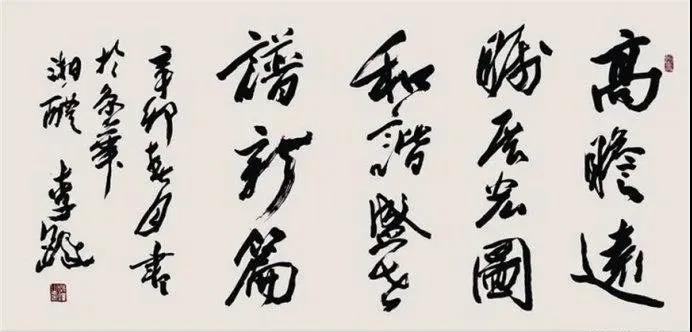 高瞻遠
矚展宏圖
和諧盛世
譜新篇
辛卯春月書
於京華
湘醴 李鐸